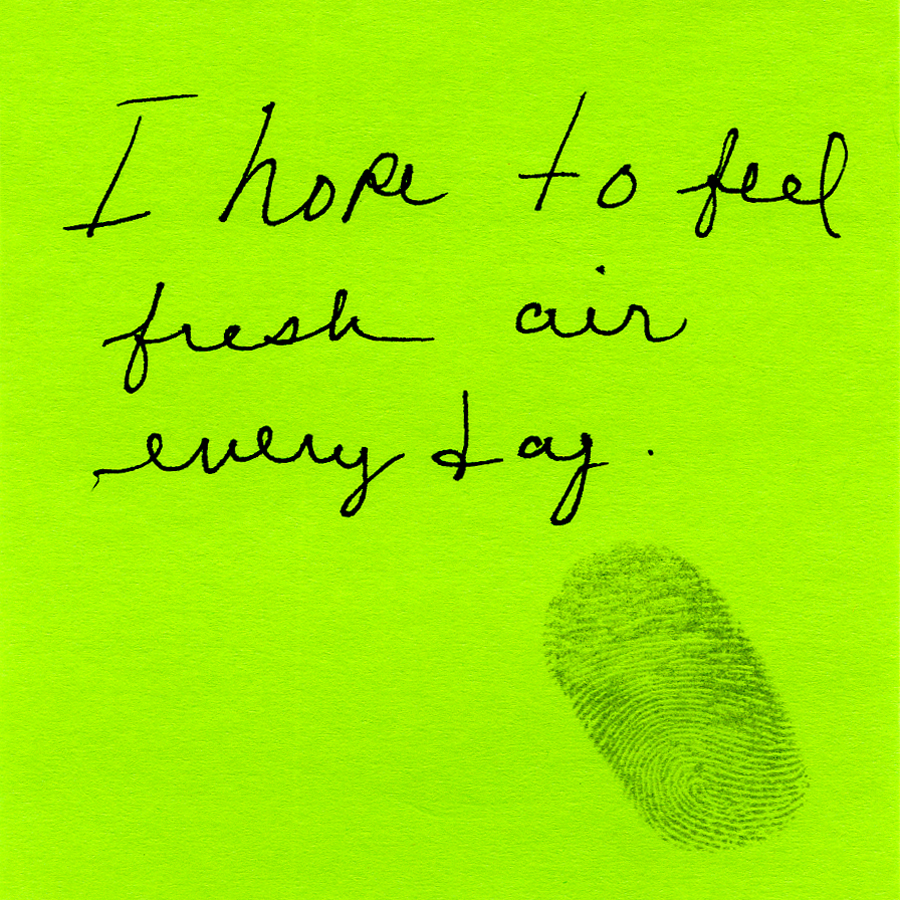 I hope to feel
fresh air
every day.